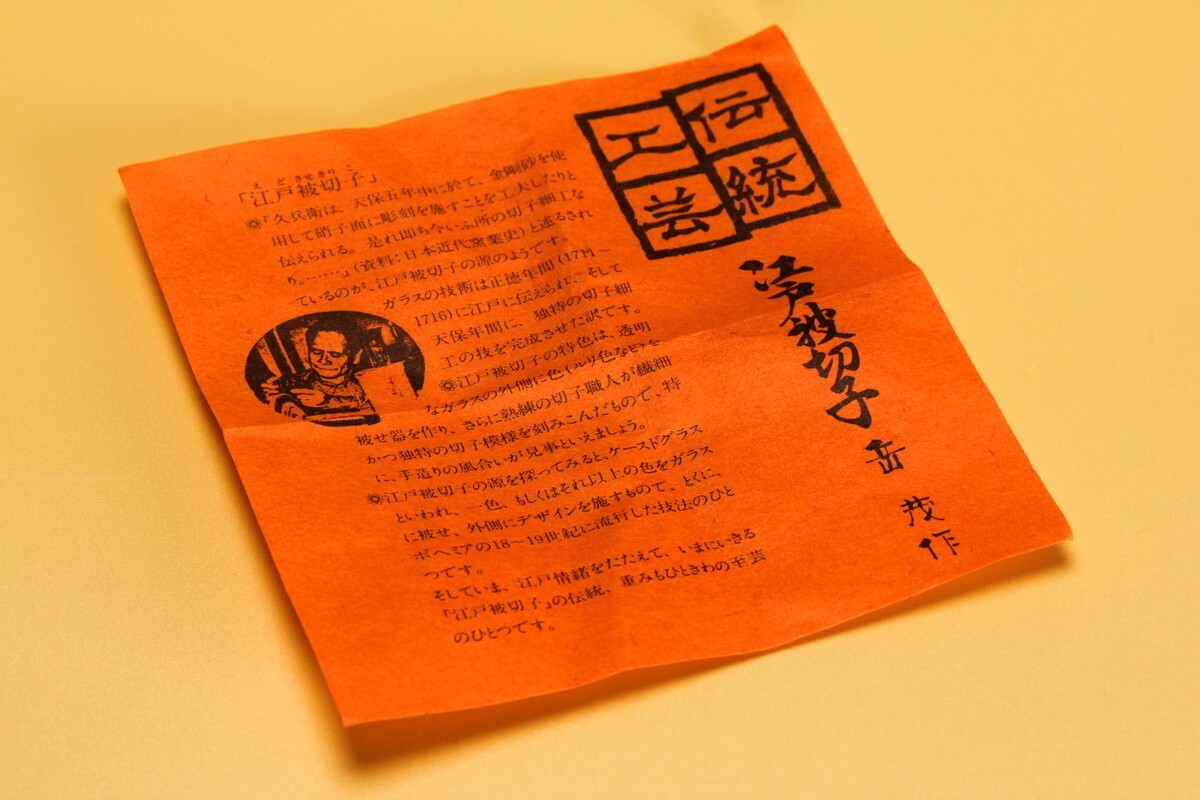 伝統
工芸
江戸被切子
岳
茂
作
えどきせきりこ
「江戸被切子」
◎「久兵衛は、天保五年中に於て、金剛砂を使
用して硝子面に彫刻を施すことを工夫したりと
伝えられる。是れ即ち今いふ所の切子細工な
り。……」(資料:日本近代窯業史)と述るされ
ているのが、江戸被切子の源のようです。
ガラスの技術は正徳年間(1711〜
1716)に江戸に伝えられ、そして
天保年間に、独特の切子細
工の技を完成させた訳です。
◎江戸被切子の特色は、透明
なガラスの外側に色(ルリ色など)を
被せ器を作り、さらに熟練の切子職人が繊細
かつ独特の切子模様を刻みこんだもので、特
に、手造りの風合いが見事といえましょう。
◎江戸被切子の源を探ってみると、ケースドグラス
といわれ、一色、もしくはそれ以上の色をガラス
に被せ、外側にデザインを施すもので、とくに、
ボヘミアの18〜19世紀に流行した技法のひと
つです。
そしていま、江戸情緒をたたえて、いまにいきる
「江戸被切子」の伝統、重みもひときわの至芸
のひとつです。